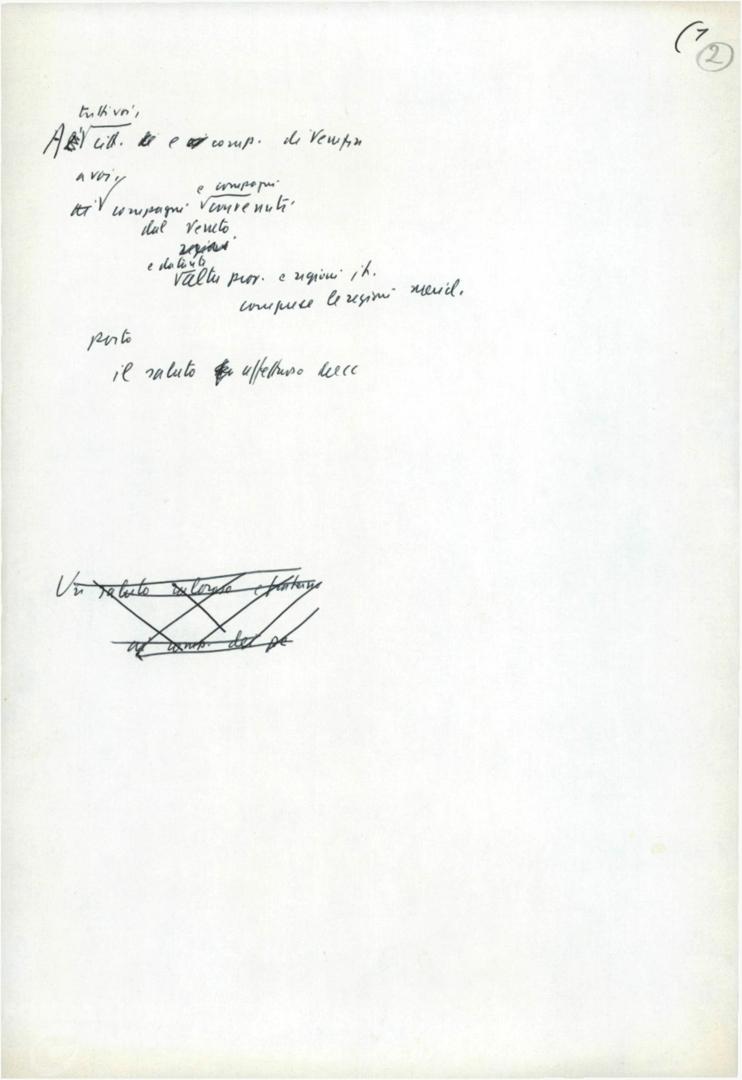 (1
2
tutti voi,
A citt. e comp. di Venezia
a voi,
e compagni
compagni convenuti
dal Veneto
regioni
e da tante
altre prov. e regioni it.
comprese le regioni merid.
porto
il saluto affettuoso della
Un saluto caloroso e fraterno
ai comp. del pc